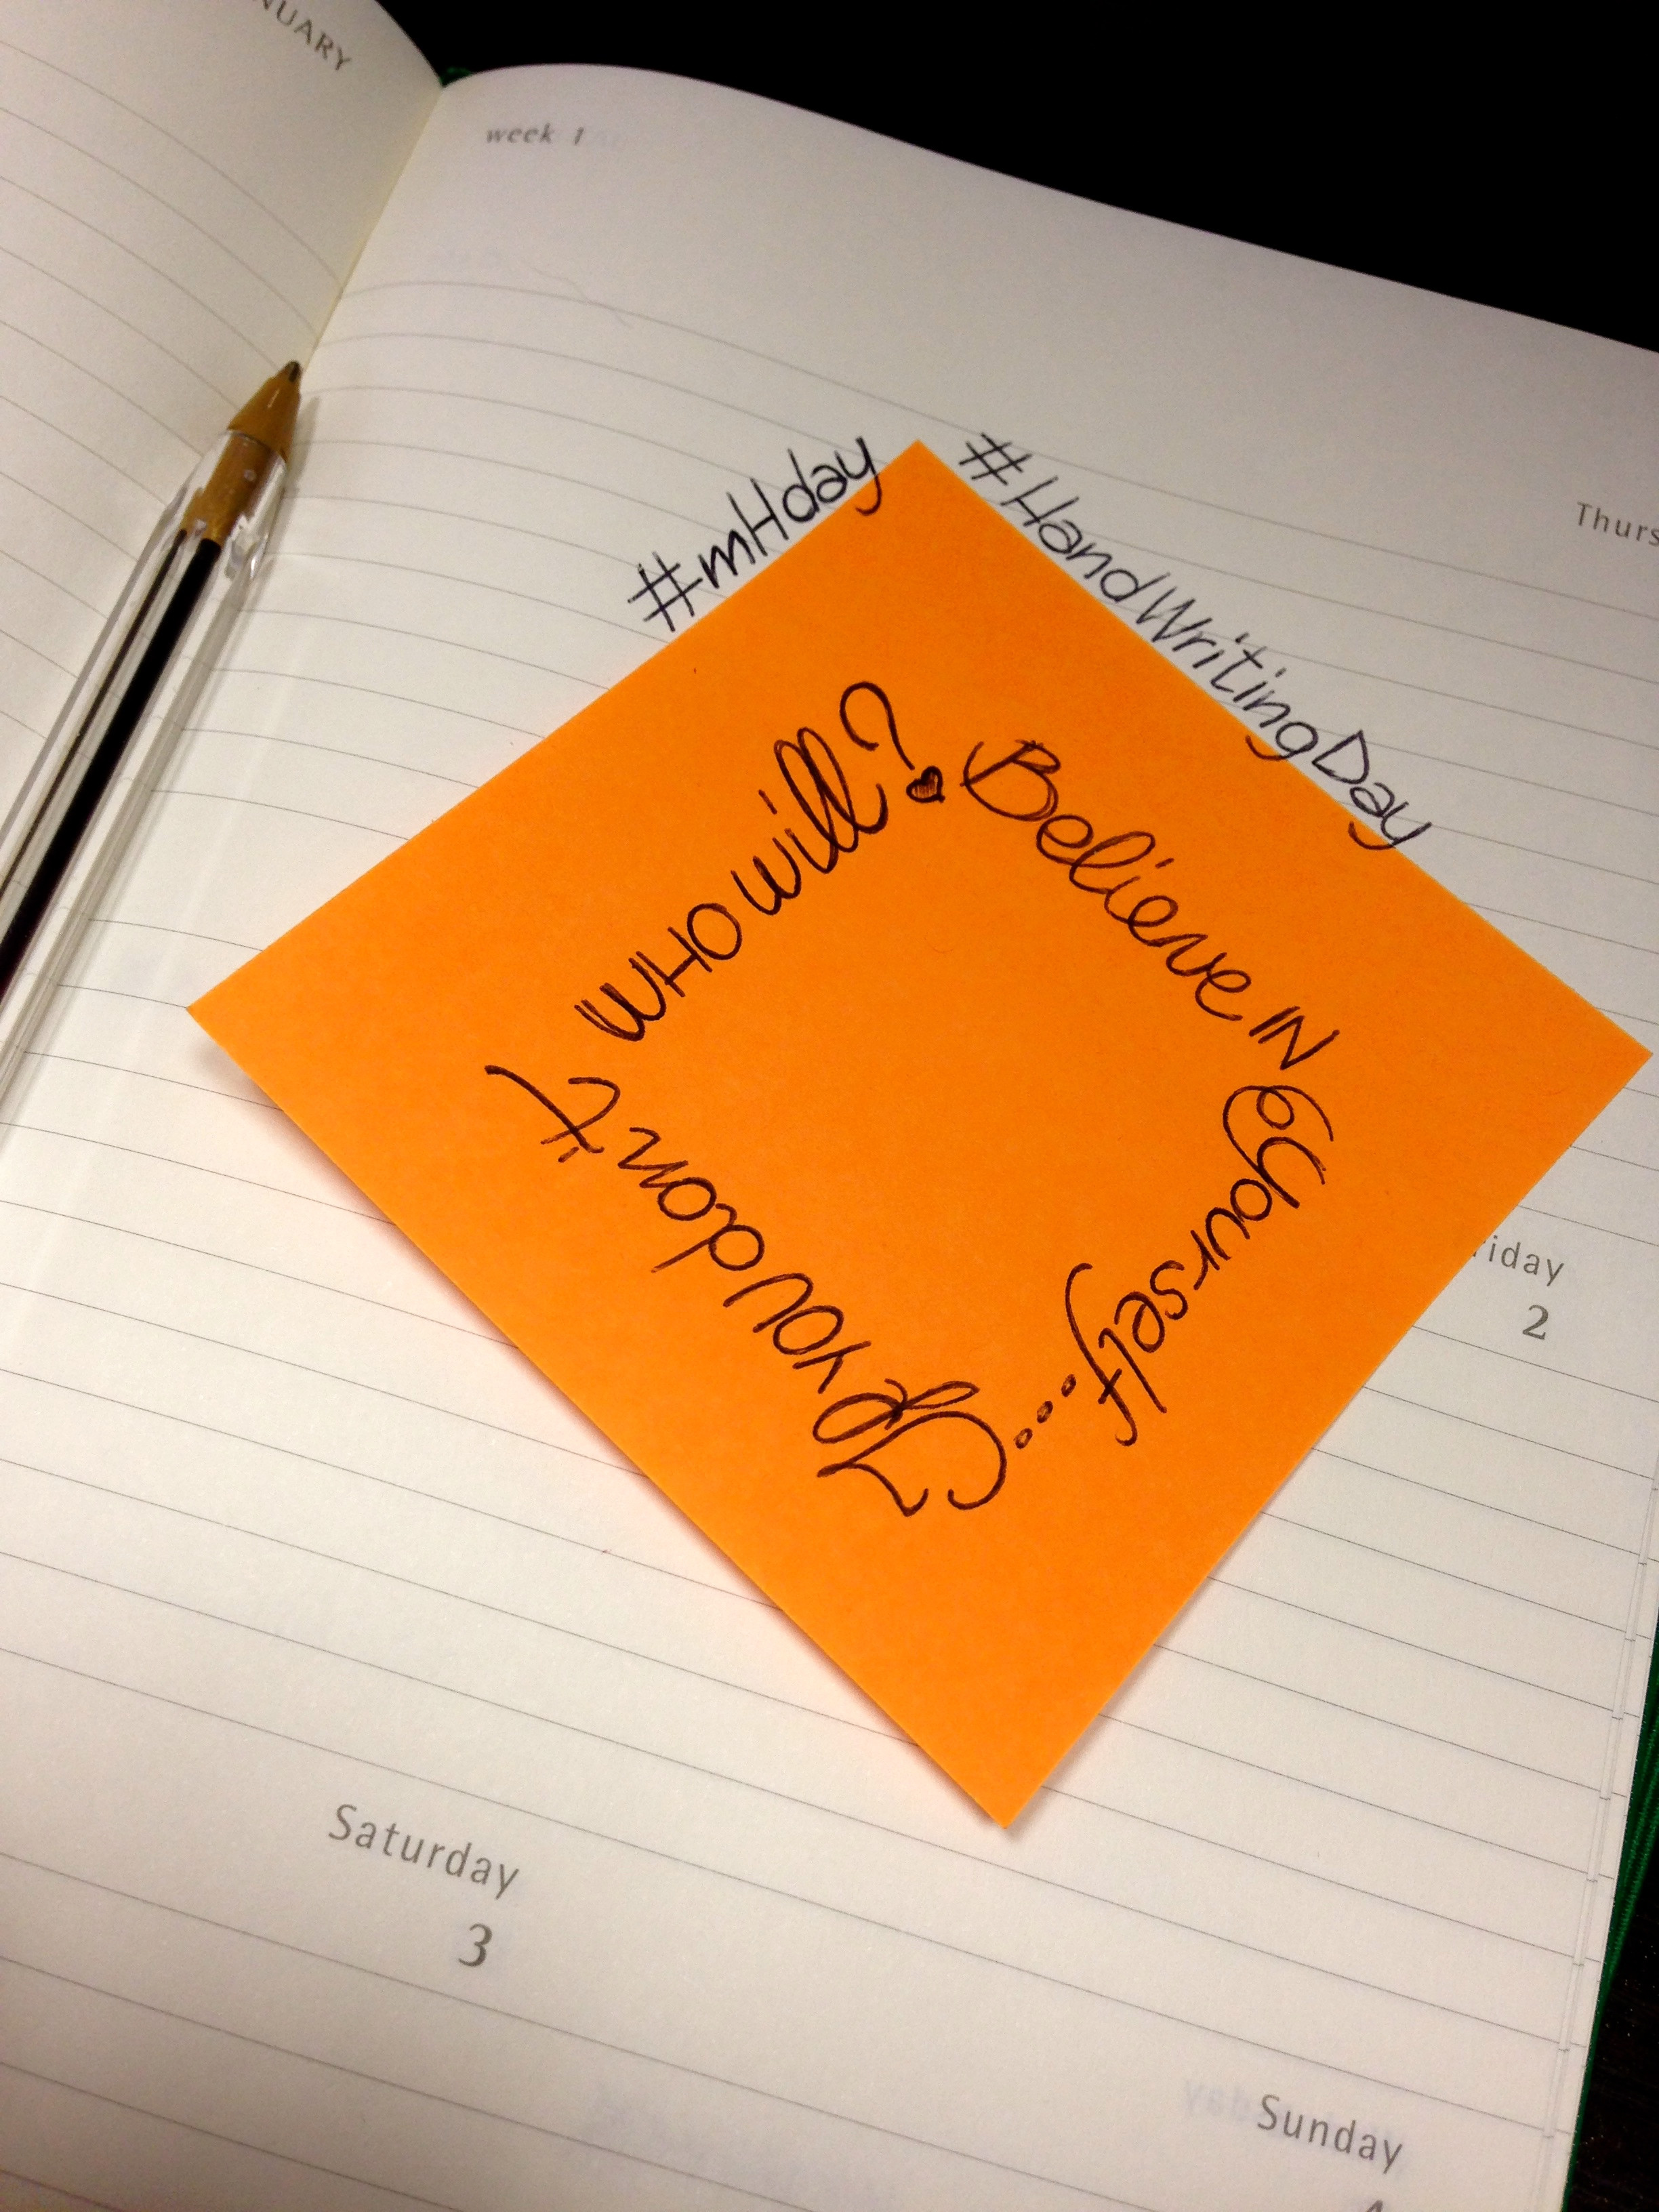 week 1
#mHday
#HandWritingDay
Believe IN
Yourself...
If you don't
WHO will?
2
Saturday
3
Sunday